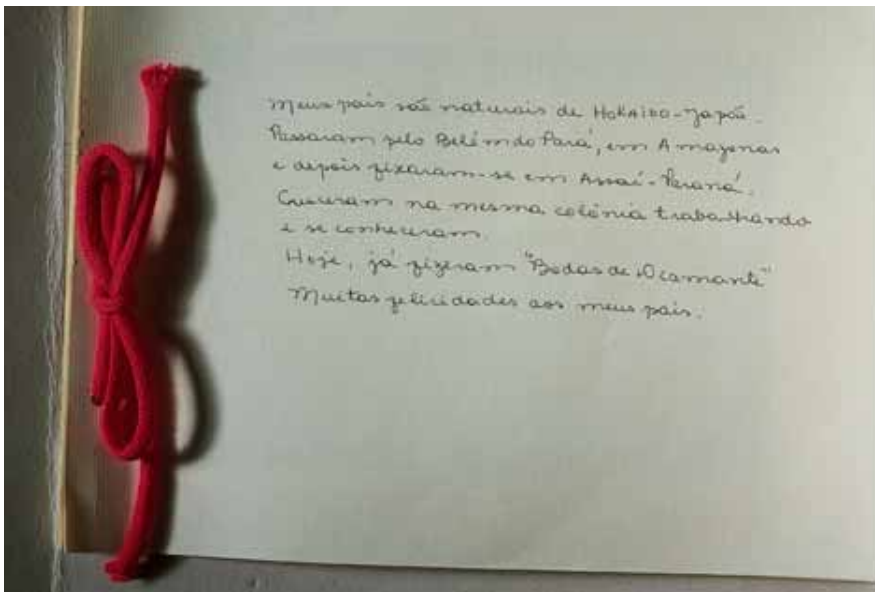 Meus pais são naturais de HOKAIDO-Japão.
Passaram pelo Belém do Pará, em Amazonas
e depois fixaram-se em Assaí-Paraná.
Cresceram na mesma colônia trabalhando
e se conheceram.
Hoje, já fizeram "Bodas de Diamante"
Muitas felicidades aos meus pais.